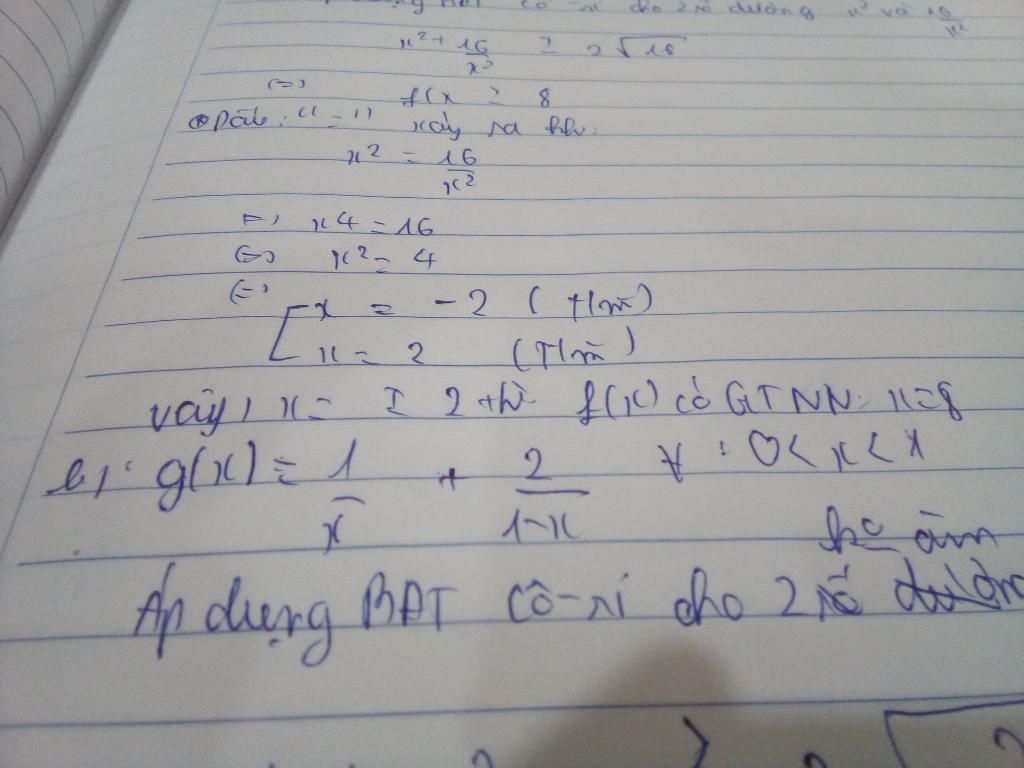 BĐT Cô-si cho 2 số dương x² và 16/x²
x² + 16/x² ≥ 2√16
(=) f(x ≥ 8
Dấu "=" xảy ra khi:
x² = 16/x²
(=) x4 = 16
(=) x² = 4
(=) [ x = -2 (T/m)
x = 2 (T/m)
vậy, x = ± 2 thì f(x) có GTNN: x=8
b, g(x) = 1/x + 2/1-x ∀ : 0 < x < 1
âm
Áp dụng BĐT Cô-si cho 2 số